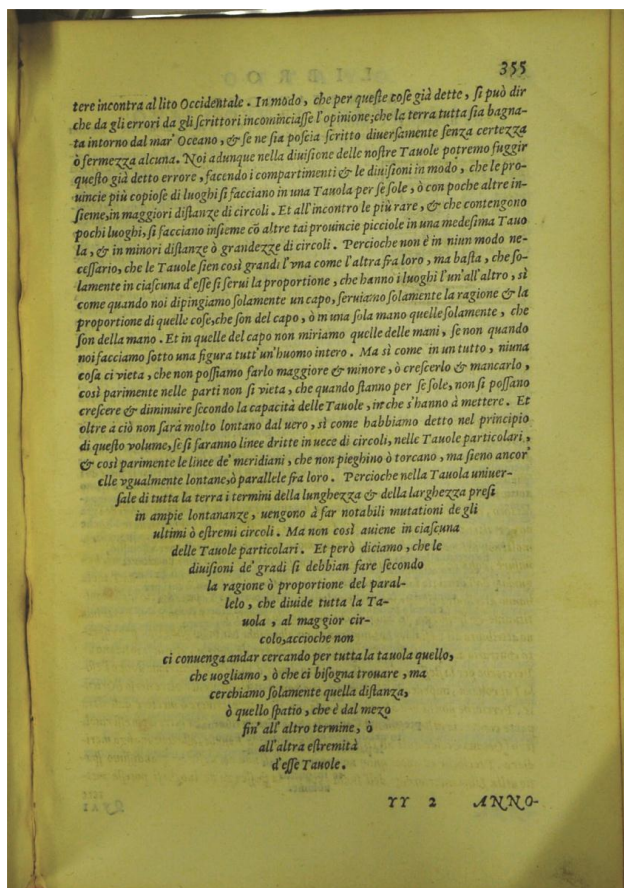 355
tere incontra al lito Occidentale. In modo, che per queſte coſe già dette, ſi può dir
che da gli errori da gli ſcrittori incominciaſſe l'opinione; che la terra tutta ſia bagna-
ta intorno dal mar' Oceano, & ſe ne ſia poſcia ſcritto diuerſamente ſenza certezza
ò fermezza alcuna. Noi adunque nella diuiſione delle noſtre Tauole potremo fuggir
queſto già detto errore, facendo i compartimenti & le diuiſioni in modo, che le pro-
uincie più copioſe di luoghi ſi facciano in una Tauola per ſe ſole, ò con poche altre in-
ſieme, in maggiori diſtanze di circoli. Et all'incontro le più rare, & che contengono
pochi luoghi, ſi facciano inſieme cõ altre tai prouincie picciole in una medeſima Tauo
la, & in minori diſtanze ò grandezze di circoli. Percioche non è in niun modo ne-
ceſſario, che le Tauole ſien così grandi l'vna come l'altra fra loro, ma baſta, che ſo-
lamente in ciaſcuna d'eſſe ſi ſerui la proportione, che hanno i luoghi l'un'all'altro, sì
come quando noi dipingiamo ſolamente un capo, ſeruiamo ſolamente la ragione & la
proportione di quelle coſe, che ſon del capo, ò in una ſola mano quelle ſolamente, che
ſon della mano. Et in quelle del capo non miriamo quelle delle mani, ſe non quando
noi facciamo ſotto una figura tutt'un'huomo intero. Ma sì come in un tutto, niuna
coſa ci vieta, che non poſſiamo farlo maggiore & minore, ò creſcerlo & mancarlo,
così parimente nelle parti non ſi vieta, che quando ſtanno per ſe ſole, non ſi poſſano
creſcere & diminuire ſecondo la capacità delle Tauole, in che s'hanno à mettere. Et
oltre a ciò non ſarà molto lontano dal uero, sì come habbiamo detto nel principio
di queſto volume, ſe ſi faranno linee dritte in uece di circoli, nelle Tauole particolari,
& così parimente le linee de' meridiani, che non pieghino ò torcano, ma ſieno ancor'
elle vgualmente lontane, ò parallele fra loro. Percioche nella Tauola uniuer-
ſale di tutta la terra i termini della lunghezza & della larghezza preſi
in ampie lontananze, uengono à far notabili mutationi de gli
ultimi ò eſtremi circoli. Ma non così auiene in ciaſcuna
delle Tauole particolari. Et però diciamo, che le
diuiſioni de' gradi ſi debbian fare ſecondo
la ragione ò proportione del paral-
lelo, che diuide tutta la Ta-
uola, al maggior cir-
colo, accioche non
ci conuenga andar cercando per tutta la tauola quello,
che uogliamo, ò che ci biſogna trouare, ma
cerchiamo ſolamente quella diſtanza,
ò quello ſpatio, che è dal mezo
fin' all' altro termine, ò
all'altra eſtremità
d'eſſe Tauole.
YY 2 ANNO-